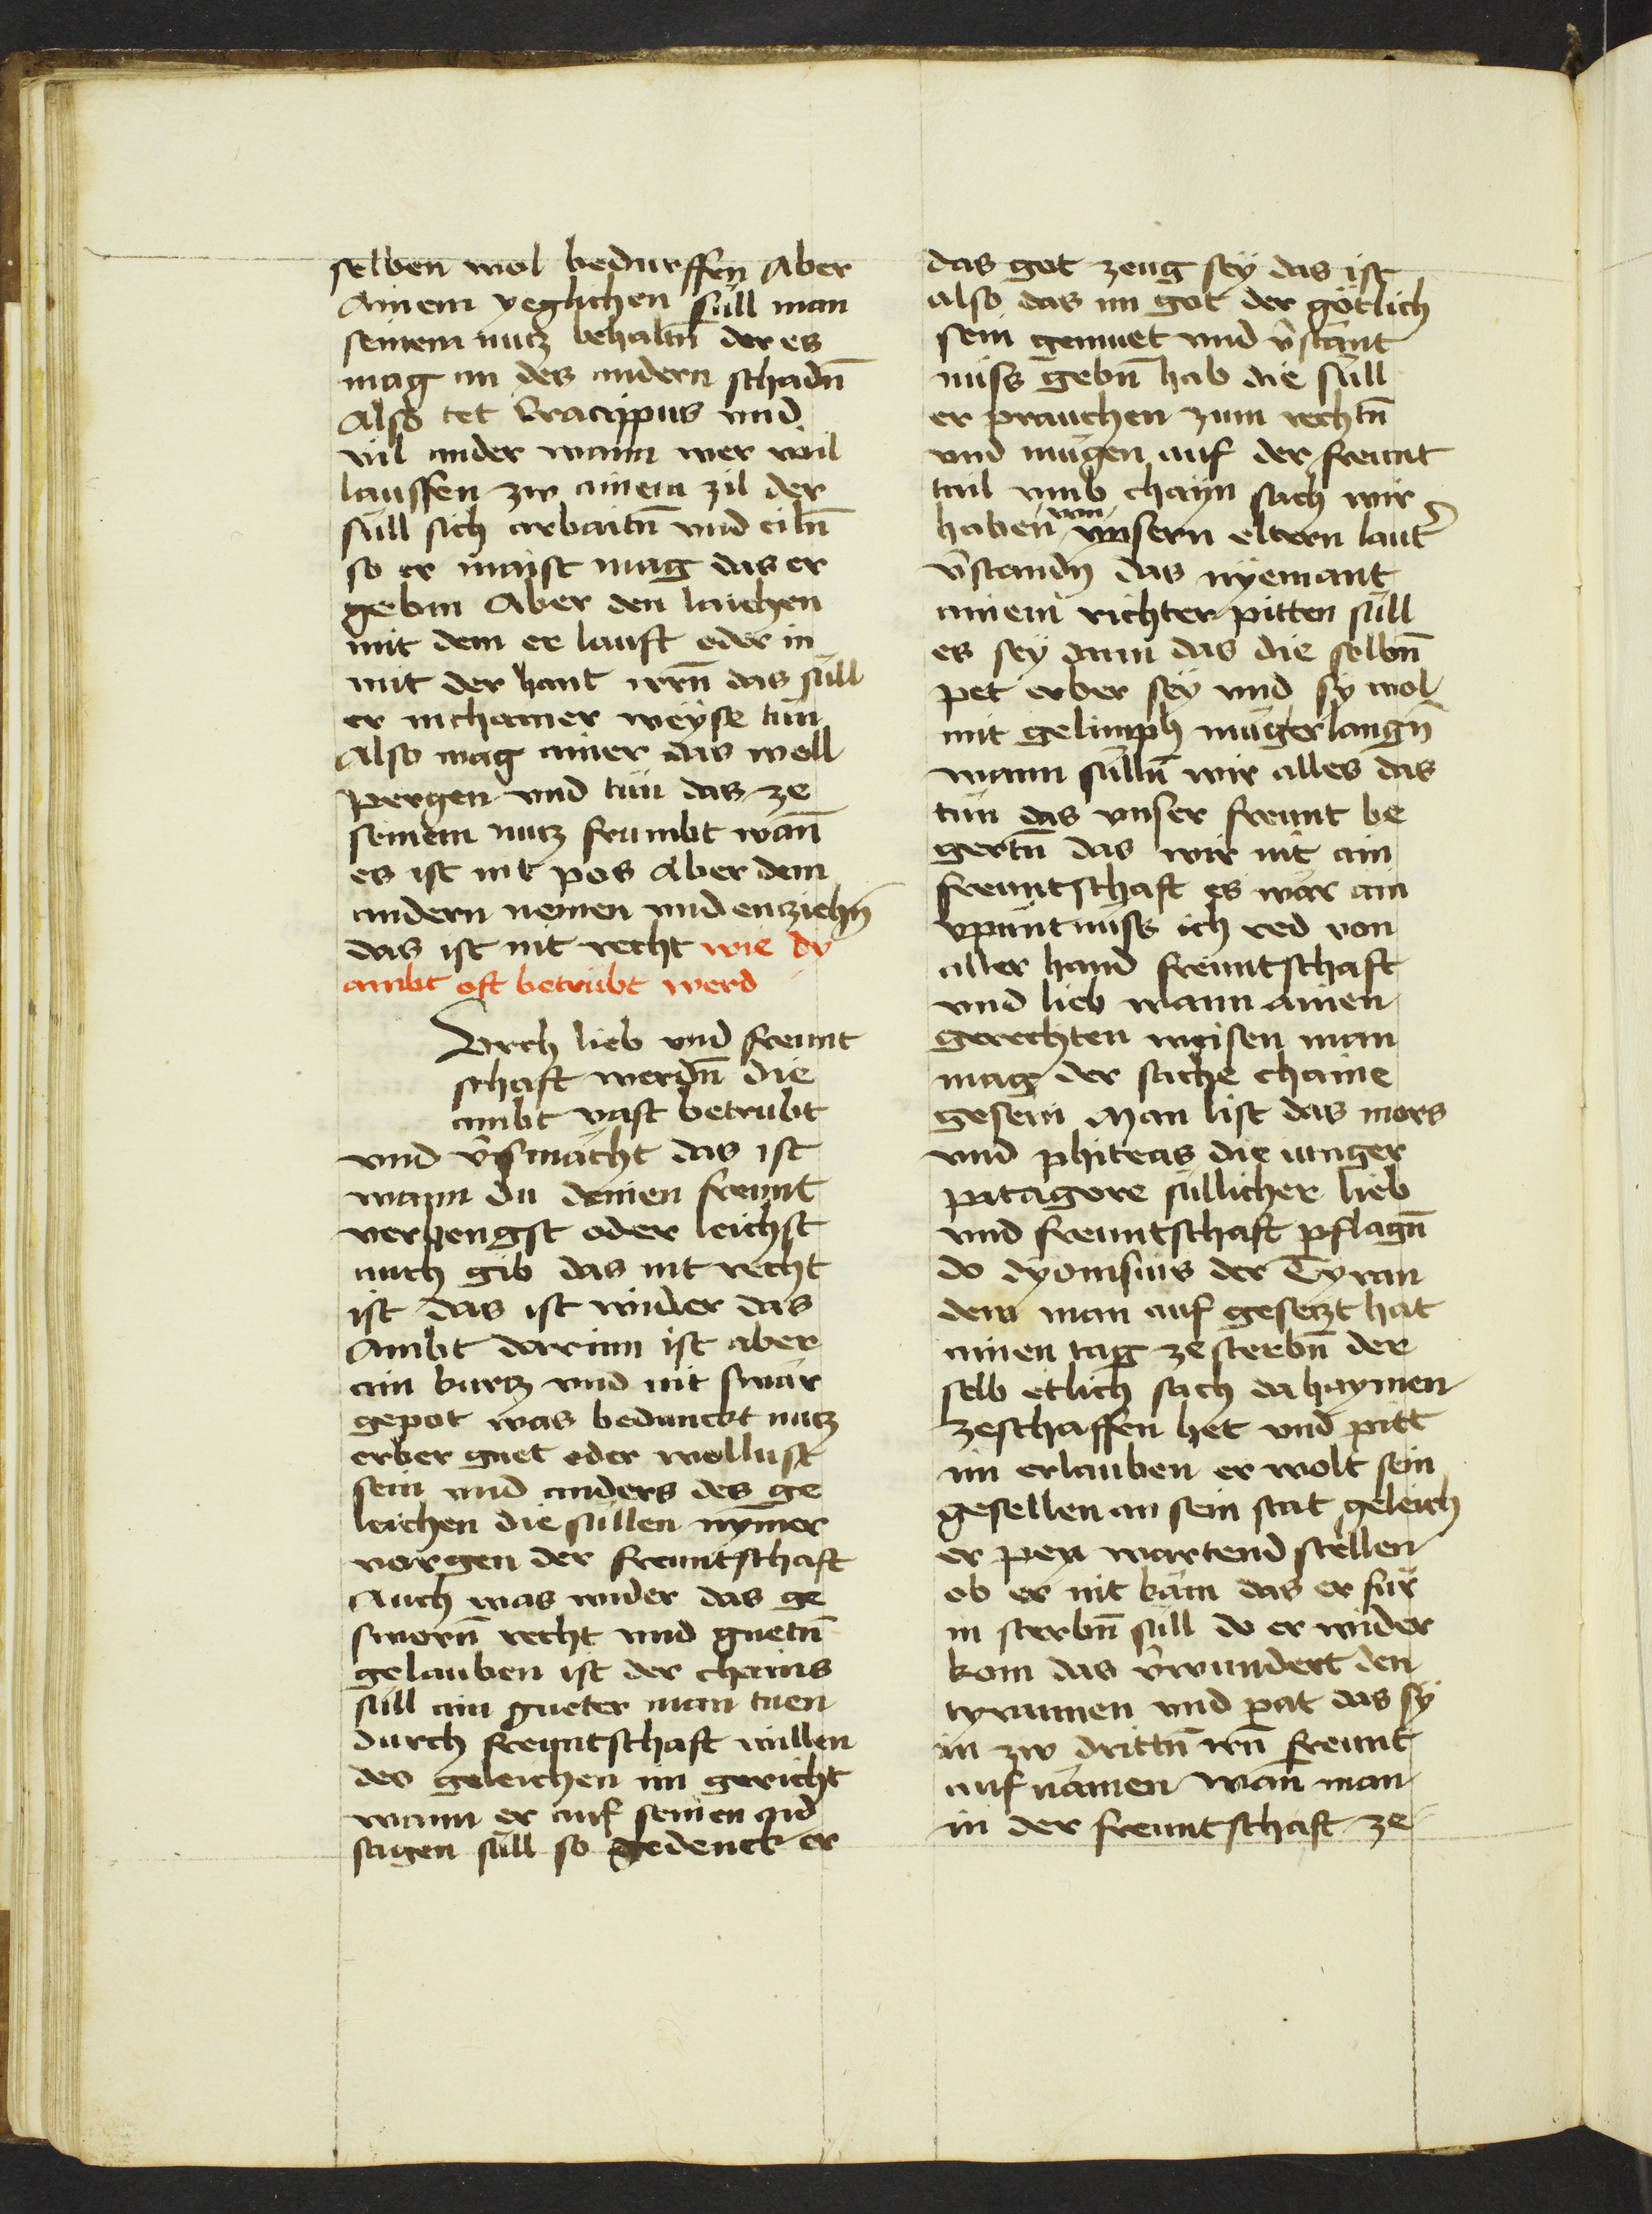 selben wol bedurffen Aber
Ainem yeglichen süll man
seinem nutz behaltn̄ der es
mag an des andern schadn̄
Also tet Cracippus vnd
vil ander wann wer wil
lauffen zw ainem zil der
süll sich arbaitn̄ vnd eiln̄
so er maist mag das er
gebin Aber den laichen
mit dem er lauft oder in
mit der hant irrn̄ das süll
er in chainer weyse tün
Also mag ainer das woll
pergen vnd tün das ze
seinem nutz frumbt wan̄
es ist nit pos Aber dem
andern nemen vnd enziehn̄
das ist nit recht wie dy
ambt oft betrübt werd
Durch lieb vnd freunt
schaft werdn̄ die
ambt vast betrubt
vnd v̄smächt das ist
wann du deinen freunt
verhengst oder leichst
auch gib das nit recht
ist das ist wider das
Ambt darinn ist aber
ain kurtz vnd nit swär
gepot was bedunckt nutz
erber guet oder wollust
sein vnd anders des ge
leichen die süllen nymer
vorgen der freuntschaft
Auch was wider das ge
sworn̄ recht vnd guetn̄
gelauben ist der chains
süll ain gueter man tuen
durch freuntschaft willen
des geleichen im gericht
wann er auf seinen aid
sagen süll so gedenck er
das got zeug sey das ist
also das im got der götlich
sein gemuet vnd v̄stant
nüss gebn̄ hab die süll
er prauchen zum rechtn̄
vnd mügen auf der freunt
tail vmb chayn sach wir
haben von vnsern eltern laut̄
v̄standn̄ das nyemant
ainem richter pitten süll
es sey dann das die selbn̄
pet erber sey vnd sy wol
mit gelimph müg erlangn̄
wann sülln̄ wir alles das
tün das vnser freunt be
gertn̄ das wir nit ain
freuntschaft es wär ain
vpüntnüss ich red von
aller hand freuntschaft
vnd lieb wann ainen
gerechten weisen man
mag der sache chaine
gesein Man list das mors
vnd phiteas die iunger
pitagore süllicher lieb
vnd freuntschaft pflagn̄
do dyonisius der Tyran
dem man auf gesetzt hat
ainen tag ze sterbn̄ der
selb etlich sach da haymen
zeschaffen het vnd pitt
im erlauben er wolt sein
gesellen an sein stat geleich
er pey wartend stellen
ob er nit käm das er für
in sterbn̄ süll do er wider
kom das v̄wundert den
tyrannen vnd pat das sy
in zw drittn̄ irn̄ freunt
auf nämen wan̄ man
in der freuntschaft ze